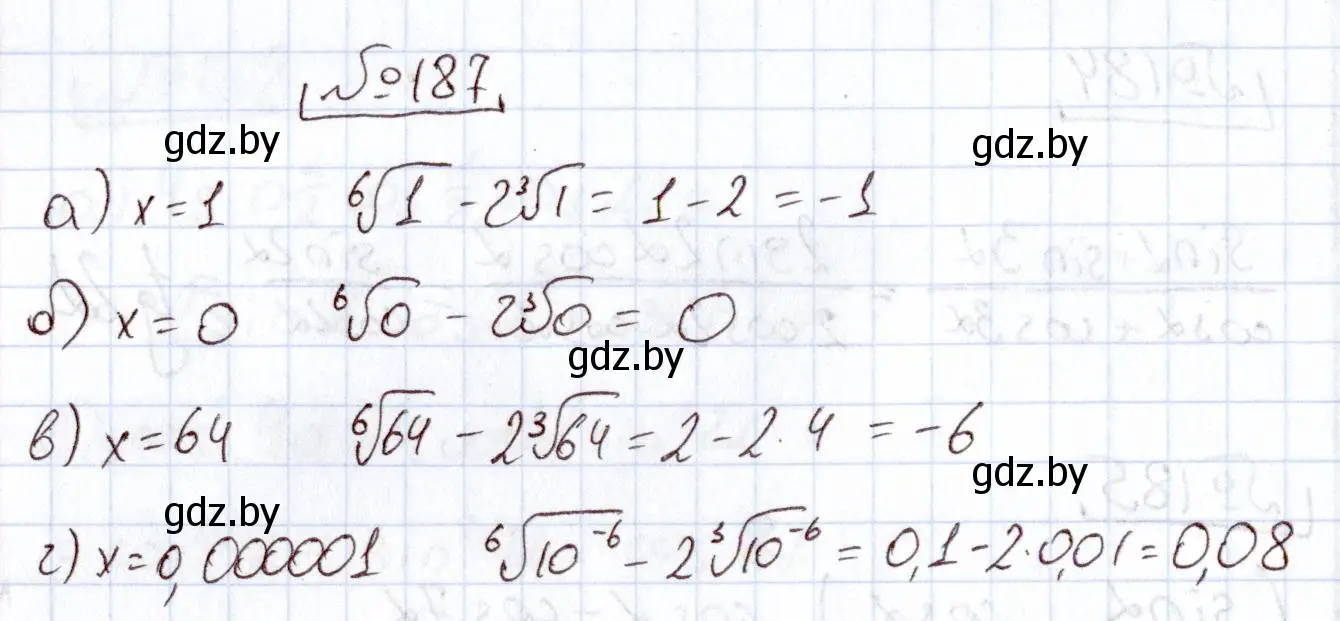 №187
gdz.by
gdz.by
а) x = 1 ⁶√1 - 2³√1 = 1 - 2 = -1
б) x = 0 ⁶√0 - 2³√0 = 0
gdz.by
в) x = 64 ⁶√64 - 2³√64 = 2 - 2·4 = -6
gdz.by
gdz.by
г) x = 0,000001 ⁶√10⁻⁶ - 2³√10⁻⁶ = 0,1 - 2·0,01 = 0,08